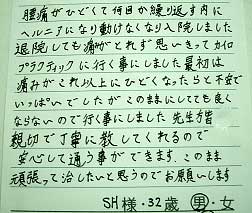 腰痛がひどくて何回か繰り返す内に
ヘルニアになり動けなくなり入院しました
退院しても痛がとれず思いきってカイロ
プラクティックに行く事にしました最初は
痛みがこれ以上にひどくなったらと不安で
いっぱいでしたがこのままにしても良く
ならないので行く事にしました先生方皆
親切で丁寧に教してくれるので
安心して通う事ができます。このまま
頑張って治したいと思うのでお願いします
SH様・32歳 男・女